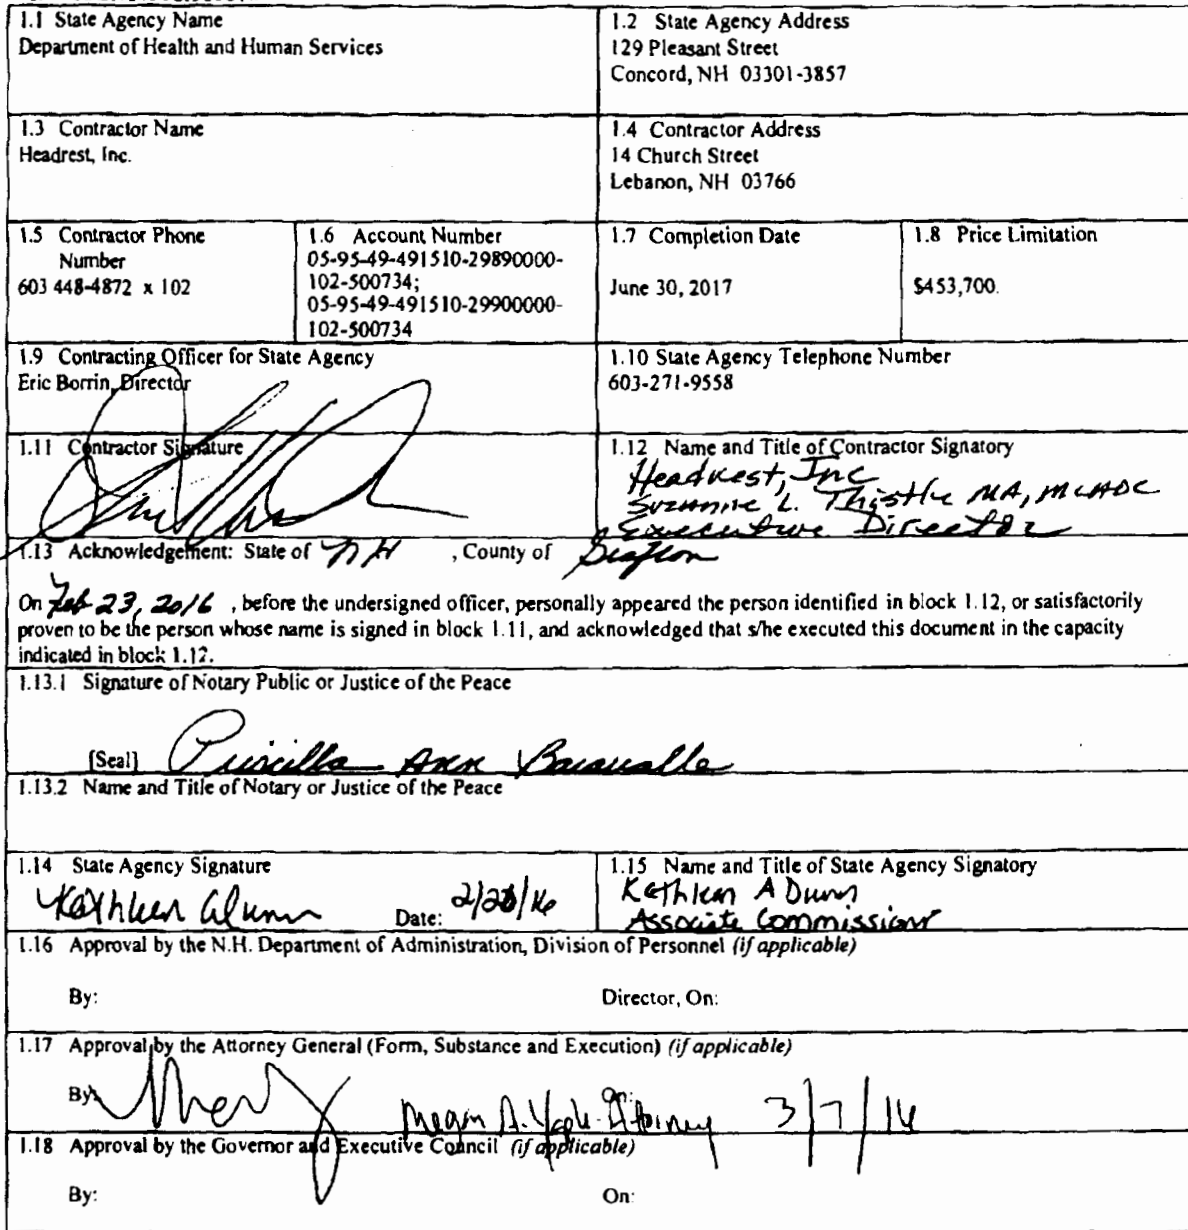 1.1 State Agency Name
Department of Health and Human Services
1.2 State Agency Address
129 Pleasant Street
Concord, NH 03301-3857
1.3 Contractor Name
Headrest, Inc.
1.4 Contractor Address
14 Church Street
Lebanon, NH 03766
1.5 Contractor Phone
Number
603 448-4872 x 102
1.6 Account Number
05-95-49-491510-29890000-
102-500734;
05-95-49-491510-29900000-
102-500734
1.7 Completion Date
June 30, 2017
1.8 Price Limitation
$453,700.
1.9 Contracting Officer for State Agency
Eric Borrin, Director
1.10 State Agency Telephone Number
603-271-9558
1.11 Contractor Signature
1.12 Name and Title of Contractor Signatory
Headrest, Inc
Suzanne L. Thistle MA, MLADC
Executive Director
1.13 Acknowledgement: State of NH , County of Grafton
On Feb 23, 2016 , before the undersigned officer, personally appeared the person identified in block 1.12, or satisfactorily
proven to be the person whose name is signed in block 1.11, and acknowledged that s/he executed this document in the capacity
indicated in block 1.12.
1.13.1 Signature of Notary Public or Justice of the Peace
[Seal] Priscilla Ann
1.13.2 Name and Title of Notary or Justice of the Peace
1.14 State Agency Signature
Kathleen A Dunn Date:
1.15 Name and Title of State Agency Signatory
Kathleen A Dunn
Associate Commissioner
1.16 Approval by the N.H. Department of Administration, Division of Personnel (if applicable)
By: Director, On:
1.17 Approval by the Attorney General (Form, Substance and Execution) (if applicable)
By: Megan A. Attorney On: 3/7/16
1.18 Approval by the Governor and Executive Council (if applicable)
By: On: